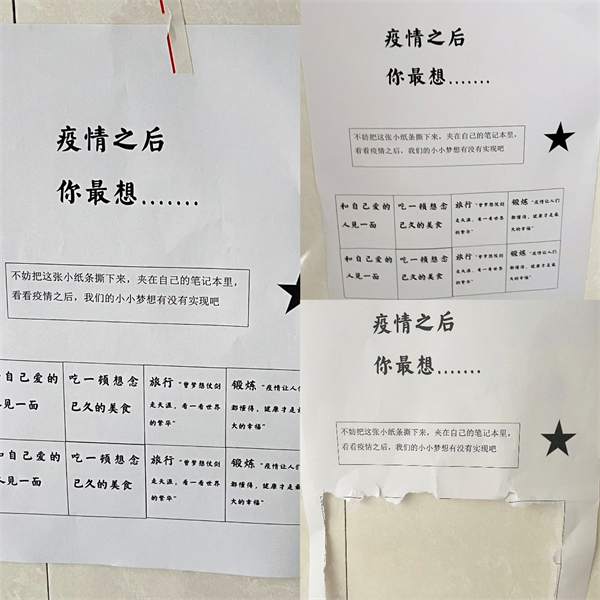 疫情之后
你最想.......
不妨把这张小纸条撕下来，夹在自己的笔记本里，
看看疫情之后，我们的小小梦想有没有实现吧
自己爱的
人见一面
吃一顿想念
已久的美食
旅行 "曾梦想仗剑
走天涯，看一看世界
的繁华"
锻炼 "疫情让人们
都懂得，健康才是最
大的幸福"
自己爱的
人见一面
吃一顿想念
已久的美食
旅行 "曾梦想仗剑
走天涯，看一看世界
的繁华"
锻炼 "疫情让人们
都懂得，健康才是最
大的幸福"
疫情之后
你最想.......
不妨把这张小纸条撕下来，夹在自己的笔记本里，
看看疫情之后，我们的小小梦想有没有实现吧
和自己爱的
人见一面
吃一顿想念
已久的美食
旅行 "曾梦想仗剑
走天涯，看一看世界的
繁华"
锻炼 "疫情让人们
都懂得，健康才是最
大的幸福"
和自己爱的
人见一面
吃一顿想念
已久的美食
旅行 "曾梦想仗剑
走天涯，看一看世界的
繁华"
锻炼 "疫情让人们
都懂得，健康才是最
大的幸福"
疫情之后
你最想.......
不妨把这张小纸条撕下来，夹在自己的笔记本里，
看看疫情之后，我们的小小梦想有没有实现吧